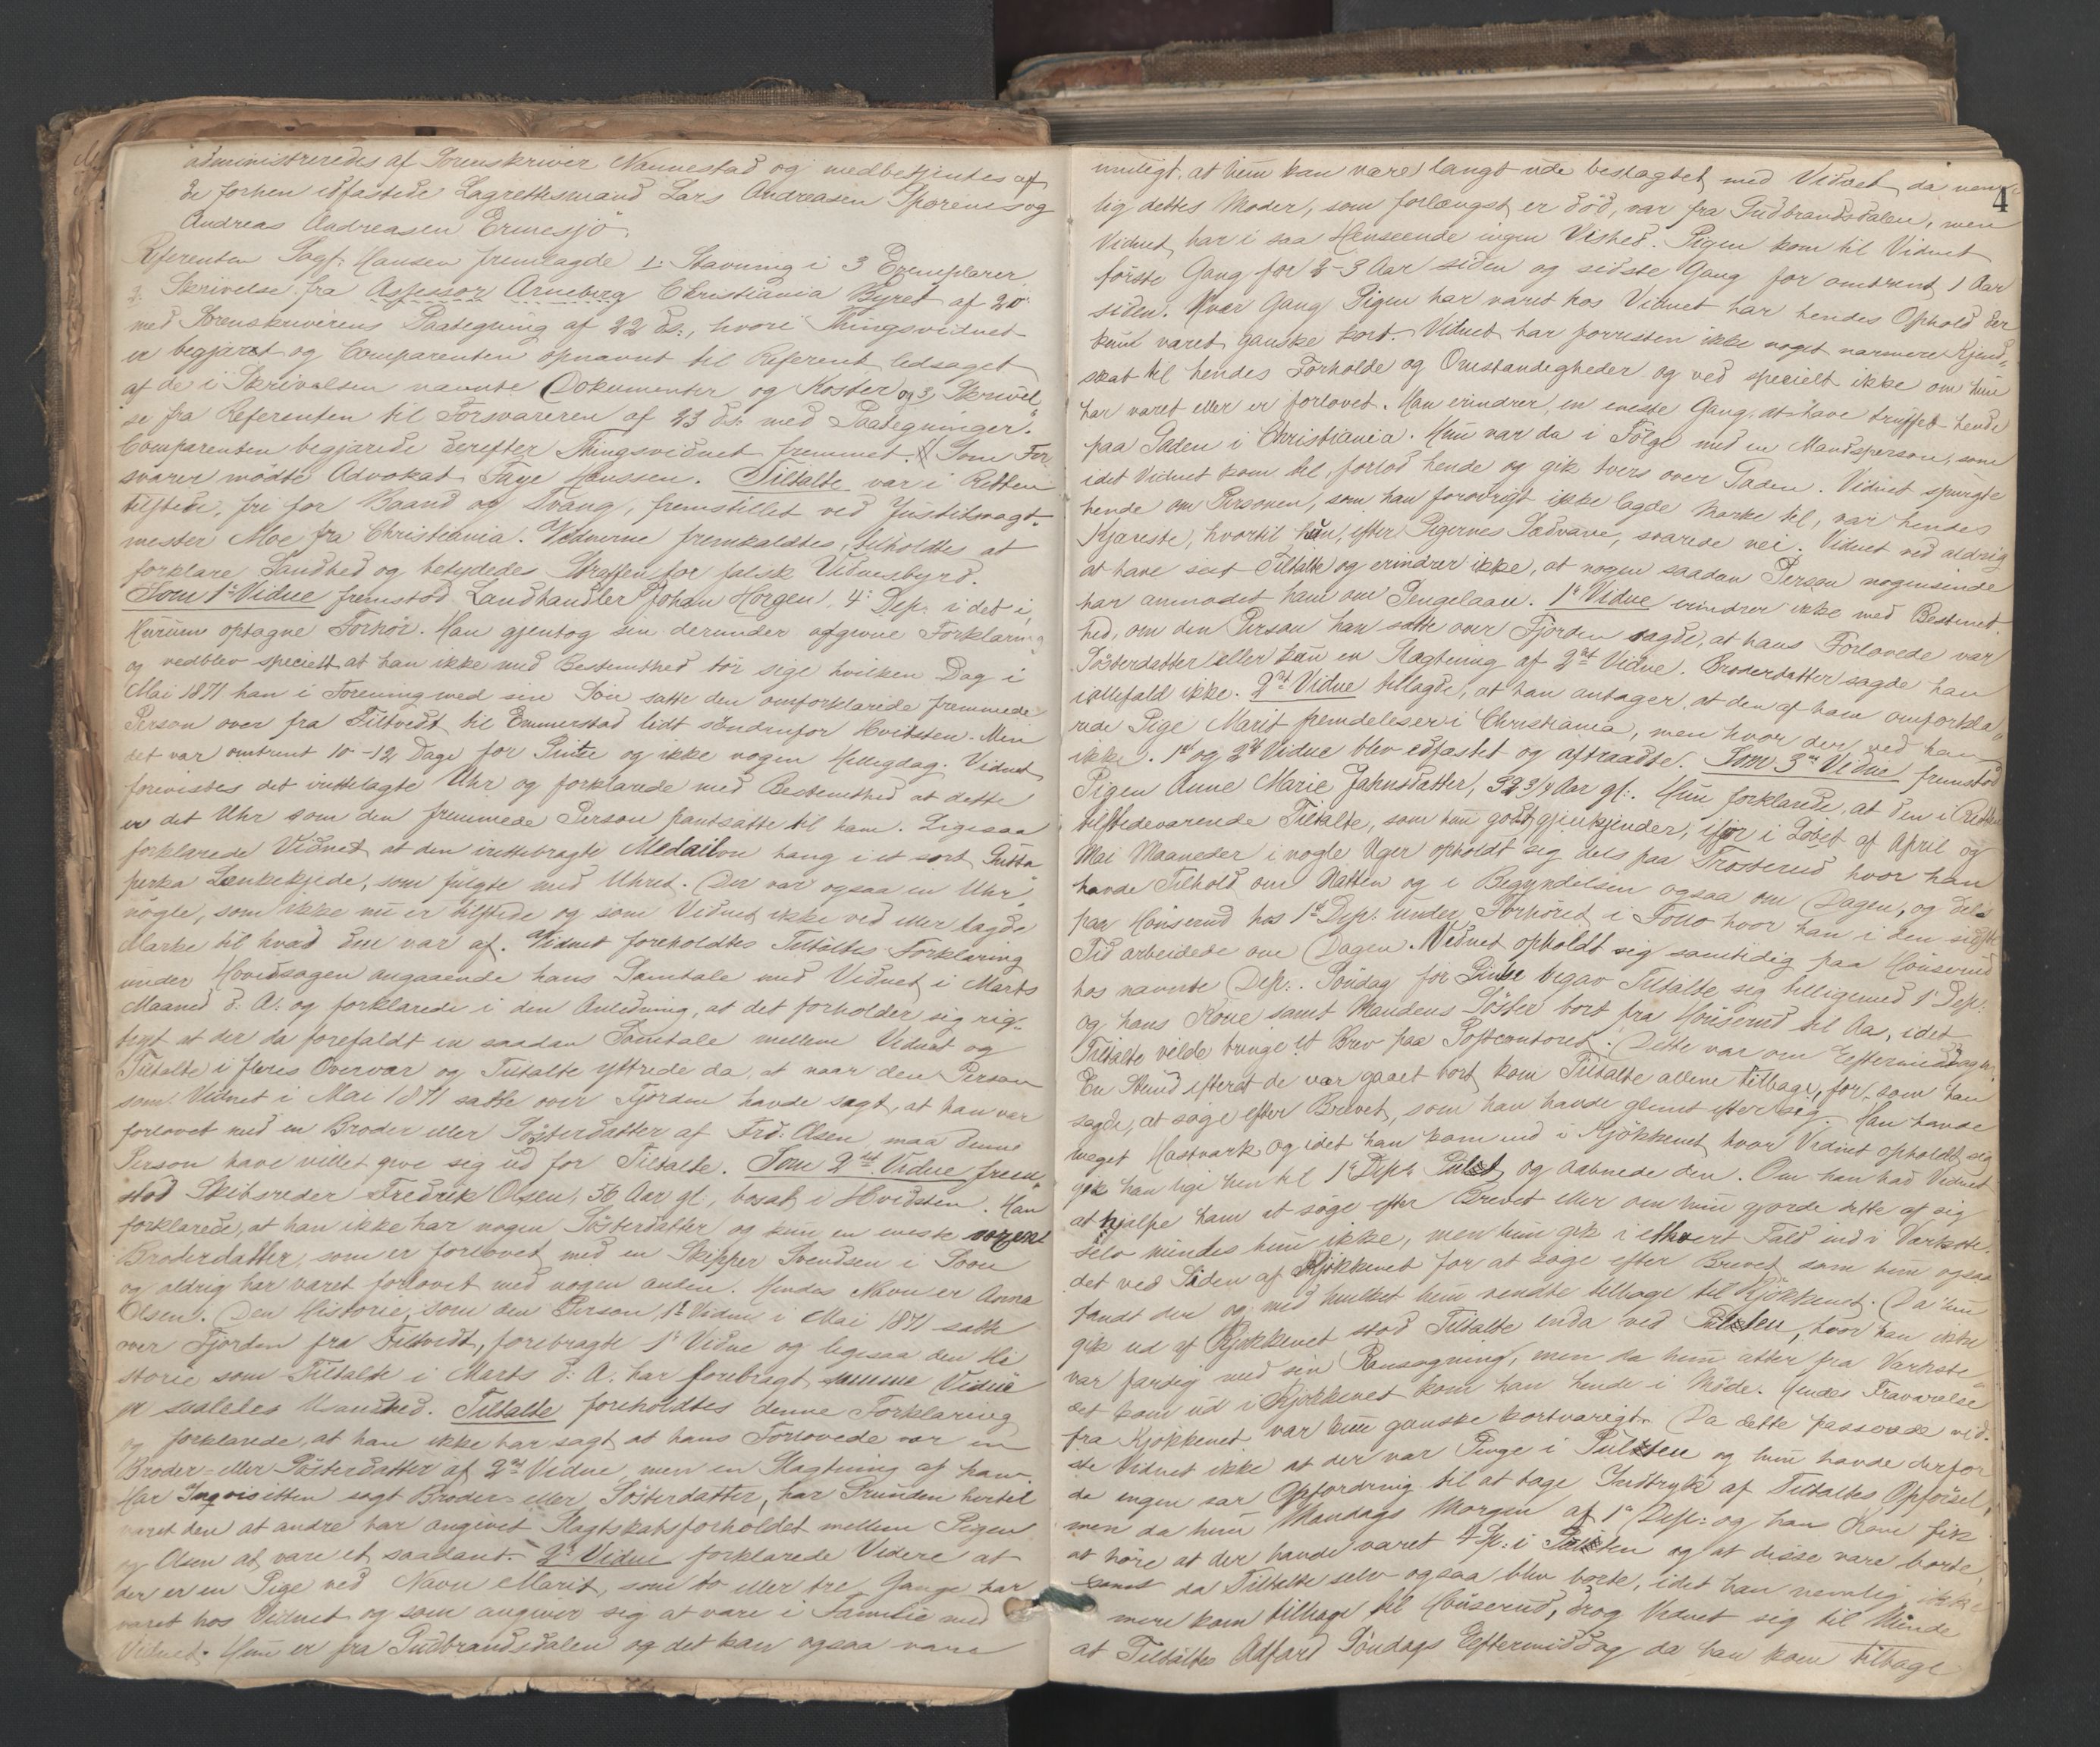 administreredes af Sorenskriver Nannestad og medbetjentes af
de forhen edfæstede Lagrettesmænd Lars Andreasen Sporenes og
Andreas Andreasen Ermesjö.
Referenten Sagf: Hansen fremlagde 1: Stævning i 3 Exemplarer
2: Skrivelse fra Assessor Arneberg Christiania Byret af 20:
med Sorenskriverens Paategning af 22 ds:, hvori Thingsvidnet
er begjært og Comparenten opnævnt til Referent, ledsaget
af de i Skrivelsen nævnte Dokumenter og Koster og 3, Skrivel
se fra Referenten til Forsvareren af 23 ds: med Paategninger.
Comparenten begjærede derefter Thingsvidnet fremmet. // Som For
svarer mödte Advokat Faye Hanssen. Tiltalte var i Retten
tilstede, fri for Baand og Tvang, fremstillet ved Justitsvagt-
mester Moe fra Christiania. Vidnerne fremkaldtes, tilholdtes at
forklare Sandhed og betydedes Straffen for falsk Vidnesbyrd.
Som 1ste Vidne fremstod Landhandler Johan Horgen, 4: Dep: i det i
Hurum optagne Forhör. Han gjentog sin derunder afgivne Forklaring
og vedblev specielt at han ikke med Bestemthed tör sige hvilken Dag i
Mai 1871 han i Forening med sin Sön satte den omforklarede fremmede
Person over fra Filtvedt til Emmerstad lidt söndenfor Hvidsten. Men
det var omtrent 10-12 Dage för Pintse og ikke nogen Helligdag. Vidnet
forevistes det irettelagte Uhr og forklarede med Bestemthed at dette
er det Uhr som den fremmede Person pantsatte til ham. Ligesaa
forklarede Vidnet at den irettebragte Medailon hang i et sort Gutta
perka Lænkekjede, som fulgte med Uhret. Der var ogsaa en Uhr
nögle, som ikke nu er tilstede og som Vidnet ikke ved eller lagde
Mærke til hvad den var af. Vidnet foreholdtes Tiltaltes Forklaring
under Hovedsagen angaaende hans Samtale med Vidnet i Marts
Maaned d: A: og forklarede i den Anledning, at det forholder sig rig-
tigt at der da forefaldt en saadan Samtale mellem Vidnet og
Tiltalte i fleres Overvær og Tiltalte yttrede da, at naar den Person
som Vidnet i Mai 1871 satte over Fjorden havde sagt, at han var
forlovet med en Broder eller Sösterdatter af Frd: Olsen, maa denne
Person have villet give sig ud for Tiltalte. Som 2det Vidne frem
stod Skibsreder Fredrik Olsen, 56 Aar gl:, bosat i Hvidsten. Han
forklarede, at han ikke har nogen Sösterdatter og kun en eneste voxen
Broderdatter, som er forlovet med en Skipper Svendsen i Soon
og aldrig har været forlovet med nogen anden. Hendes Navn er Anna
Olsen. Den Historie, som den Person, 1ste Vidne i Mai 1871 satte
over Fjorden fra Filtvedt, forebragte 1ste Vidne og ligesaa den Hi
storie som Tiltalte i Marts d: A. har forebragt samme Vidne
er saaledes Usandhed. Tiltalte foreholdtes denne Forklaring
og forklarede, at han ikke har sagt at hans Forlovede var en
Broder- eller Sösterdatter af 2det Vidne men en Slægtning af ham.
Har Inqvisitten sagt Broder- eller Sösterdatter, har Grunden hertil
været den at andre har angivet Slægtskabsforholdet mellem Pigen
og Olsen at være et saadant. 2det Vidne forklarede Videre at
der er en Pige ved Navn Marit, som to eller tre Gange har
været hos Vidnet og som angiver sig at være i Familie med
Vidnet. Hun er fra Gudbrandsdalen og det kan ogsaa være
4
muligt, at hun kan være langt ude beslægtet med Vidnet, da nem
lig dettes Moder, som forlængst er död, var fra Gudbrandsdalen, men
Vidnet har i saa Henseende ingen Vished. Pigen kom til Vidnet
förste Gang for 2-3 Aar siden og sidste Gang for omtrent 1 Aar
siden. Hver Gang Pigen har været hos Vidnet har hendes Ophold der
kun været ganske kort. Vidnet har forresten ikke noget nærmere Kjend-
skab til hendes Forholde og Omstændigheder og ved specielt ikke om hun
har været eller er forlovet. Han erindrer en eneste Gang at have truffet hende
paa Gaden i Christiania. Hun var da i Fölge med en Mandsperson, som
idet Vidnet kom til, forlod hende og gik tvers over Gaden. Vidnet spurgte
hende om Personen, som han forövrigt ikke lagde Mærke til, var hendes
Kjæreste, hvortil hun, efter Pigernes Sædvane, svarede nei. Vidnet ved aldrig
at have seet Tiltalte og erindrer ikke, at nogen saadan Person nogensinde
har anmodet ham om Pengelaan. 1ste Vidne erindrer ikke med Bestemt-
hed, om den Person han satte over Fjorden sagde, at hans Forlovede var
Sösterdatter eller kun en Slægtning af 2det Vidne. Broderdatter sagde han
iallefald ikke. 2det Vidne tillagde, at han antager, at den af ham omforkla-
rede Pige Marit fremdeles er i Christiania, men hvor der, ved han
ikke. 1ste og 2det Vidne blev edfæstet og aftraadte. Som 3die Vidne fremstod
Pigen Anne Marie Jahnsdatter, 32 3/4 Aar gl:. Hun forklarede, at den i Retten
tilstedeværende Tiltalte, som hun godt gjenkjender, ifjor i Löbet af April og
Mai Maaneder i nogle Uger opholdt sig dels paa Trosterud hvor han
havde Tilhold om Natten og i Begyndelsen ogsaa om Dagen, og dels
paa Hönserud hos 1ste Dep: under Forhöret i Follo hvor han i den sidste
Tid arbeidede om Dagen. Vidnet opholdt sig samtidig paa Hönserud
hos nævnte Dep:. Söndag för Pintse begav Tiltalte sig tilligemed 1ste Dep:
og hans Kone samt Mandens Söster bort fra Hönserud til Aa, idet
Tiltalte vilde bringe et Brev paa Postcontoret. Dette var om Eftermiddagen.
En Stund efterat de var gaaet bort kom Tiltalte allene tilbage, for, som han
sagde, at söge efter Brevet, som han havde glemt efter sig. Han havde
meget Hastværk og idet han kom ind i Kjökkenet, hvor Vidnet opholdt sig
gik han lige hen til 1ste Dep's Pult og aabnede den. Om han bad Vidnet
at hjælpe ham at söge efter Brevet eller om hun gjorde dette af sig
selv mindes hun ikke, men hun gik i ethvert Fald ind i Værkste-
det ved Siden af Kjökkenet for at söge efter Brevet som hun ogsaa
fandt der og med hvilket hun vendte tilbage til Kjökkenet. Da hun
gik ud af Kjökkenet stod Tiltalte enda ved Pulten, hvor han ikke
var færdig med sin Ransagning, men da hun atter fra Værkste-
det kom ud i Kjökkenet kom han hende i Möde. Hendes Fraværelse
fra Kjökkenet var kun ganske kortvarigt. Da dette passerede vid-
ste Vidnet ikke at der var Penge i Pulten og hun havde derfor
da ingen sær Opfordring til at tage Indtryk af Tiltaltes Opförsel,
men da hun Mandags Morgen af 1ste Dep: og hans Kone fik
at höre at der havde været 4 Sp: i Pulten og at disse vare borte,
samt da Tiltalte selv ogsaa blev borte, idet han nemlig ikke
mere kom tilbage til Hönserud, drog Vidnet sig til Minde
at Tiltaltes Adfærd Söndags Eftermiddag da han kom tilbage